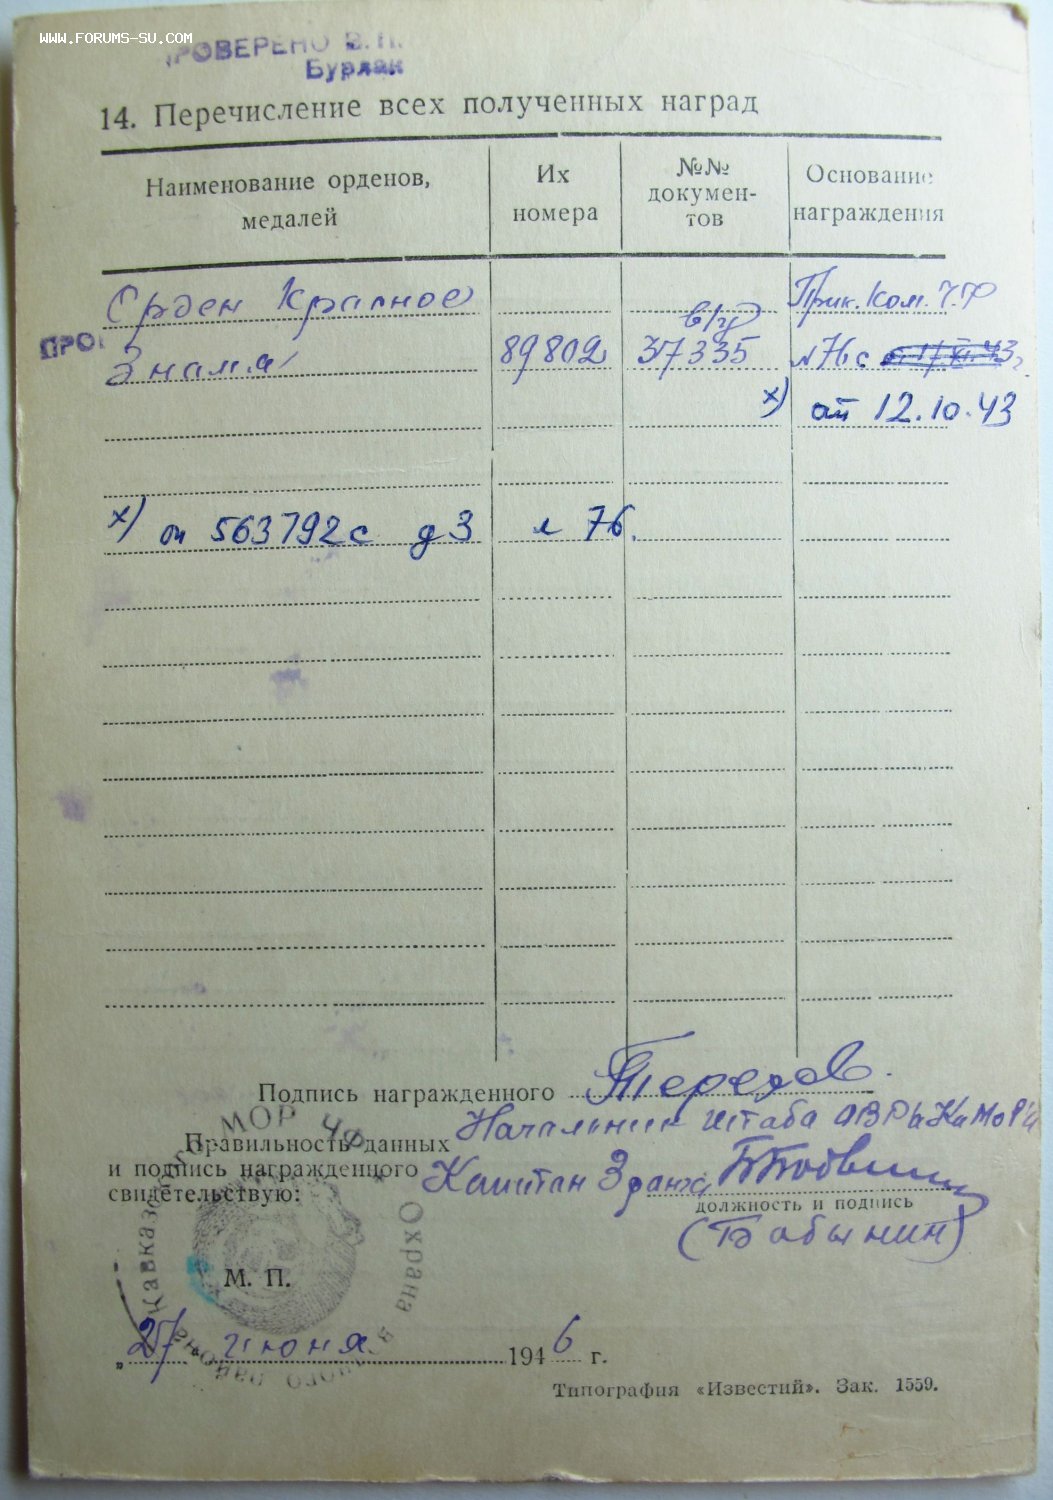 WWW.FORUMS-SU.COM
РОВЕРЕНО В.П.
Бурлак
14. Перечисление всех полученных наград
Наименование орденов, медалей
Их номера
№№ документов
Основание награждения
Орден Красное Прик. Ком. Ч.Ф
в/уд
ПРО
Знамя 89802 37335 №76с
х) от 12.10.43
х) оп 563792с д3 л 76.
Подпись награжденного
МОР ЧФ
Начальник штаба ОВРа
Правильность данных
и подпись награжденного
свидетельствую:
Капитан 3 ранга
должность и подпись
(Бабынин)
Охрана
М. П.
„27“ июня 1946 г.
Типография «Известий». Зак. 1559.